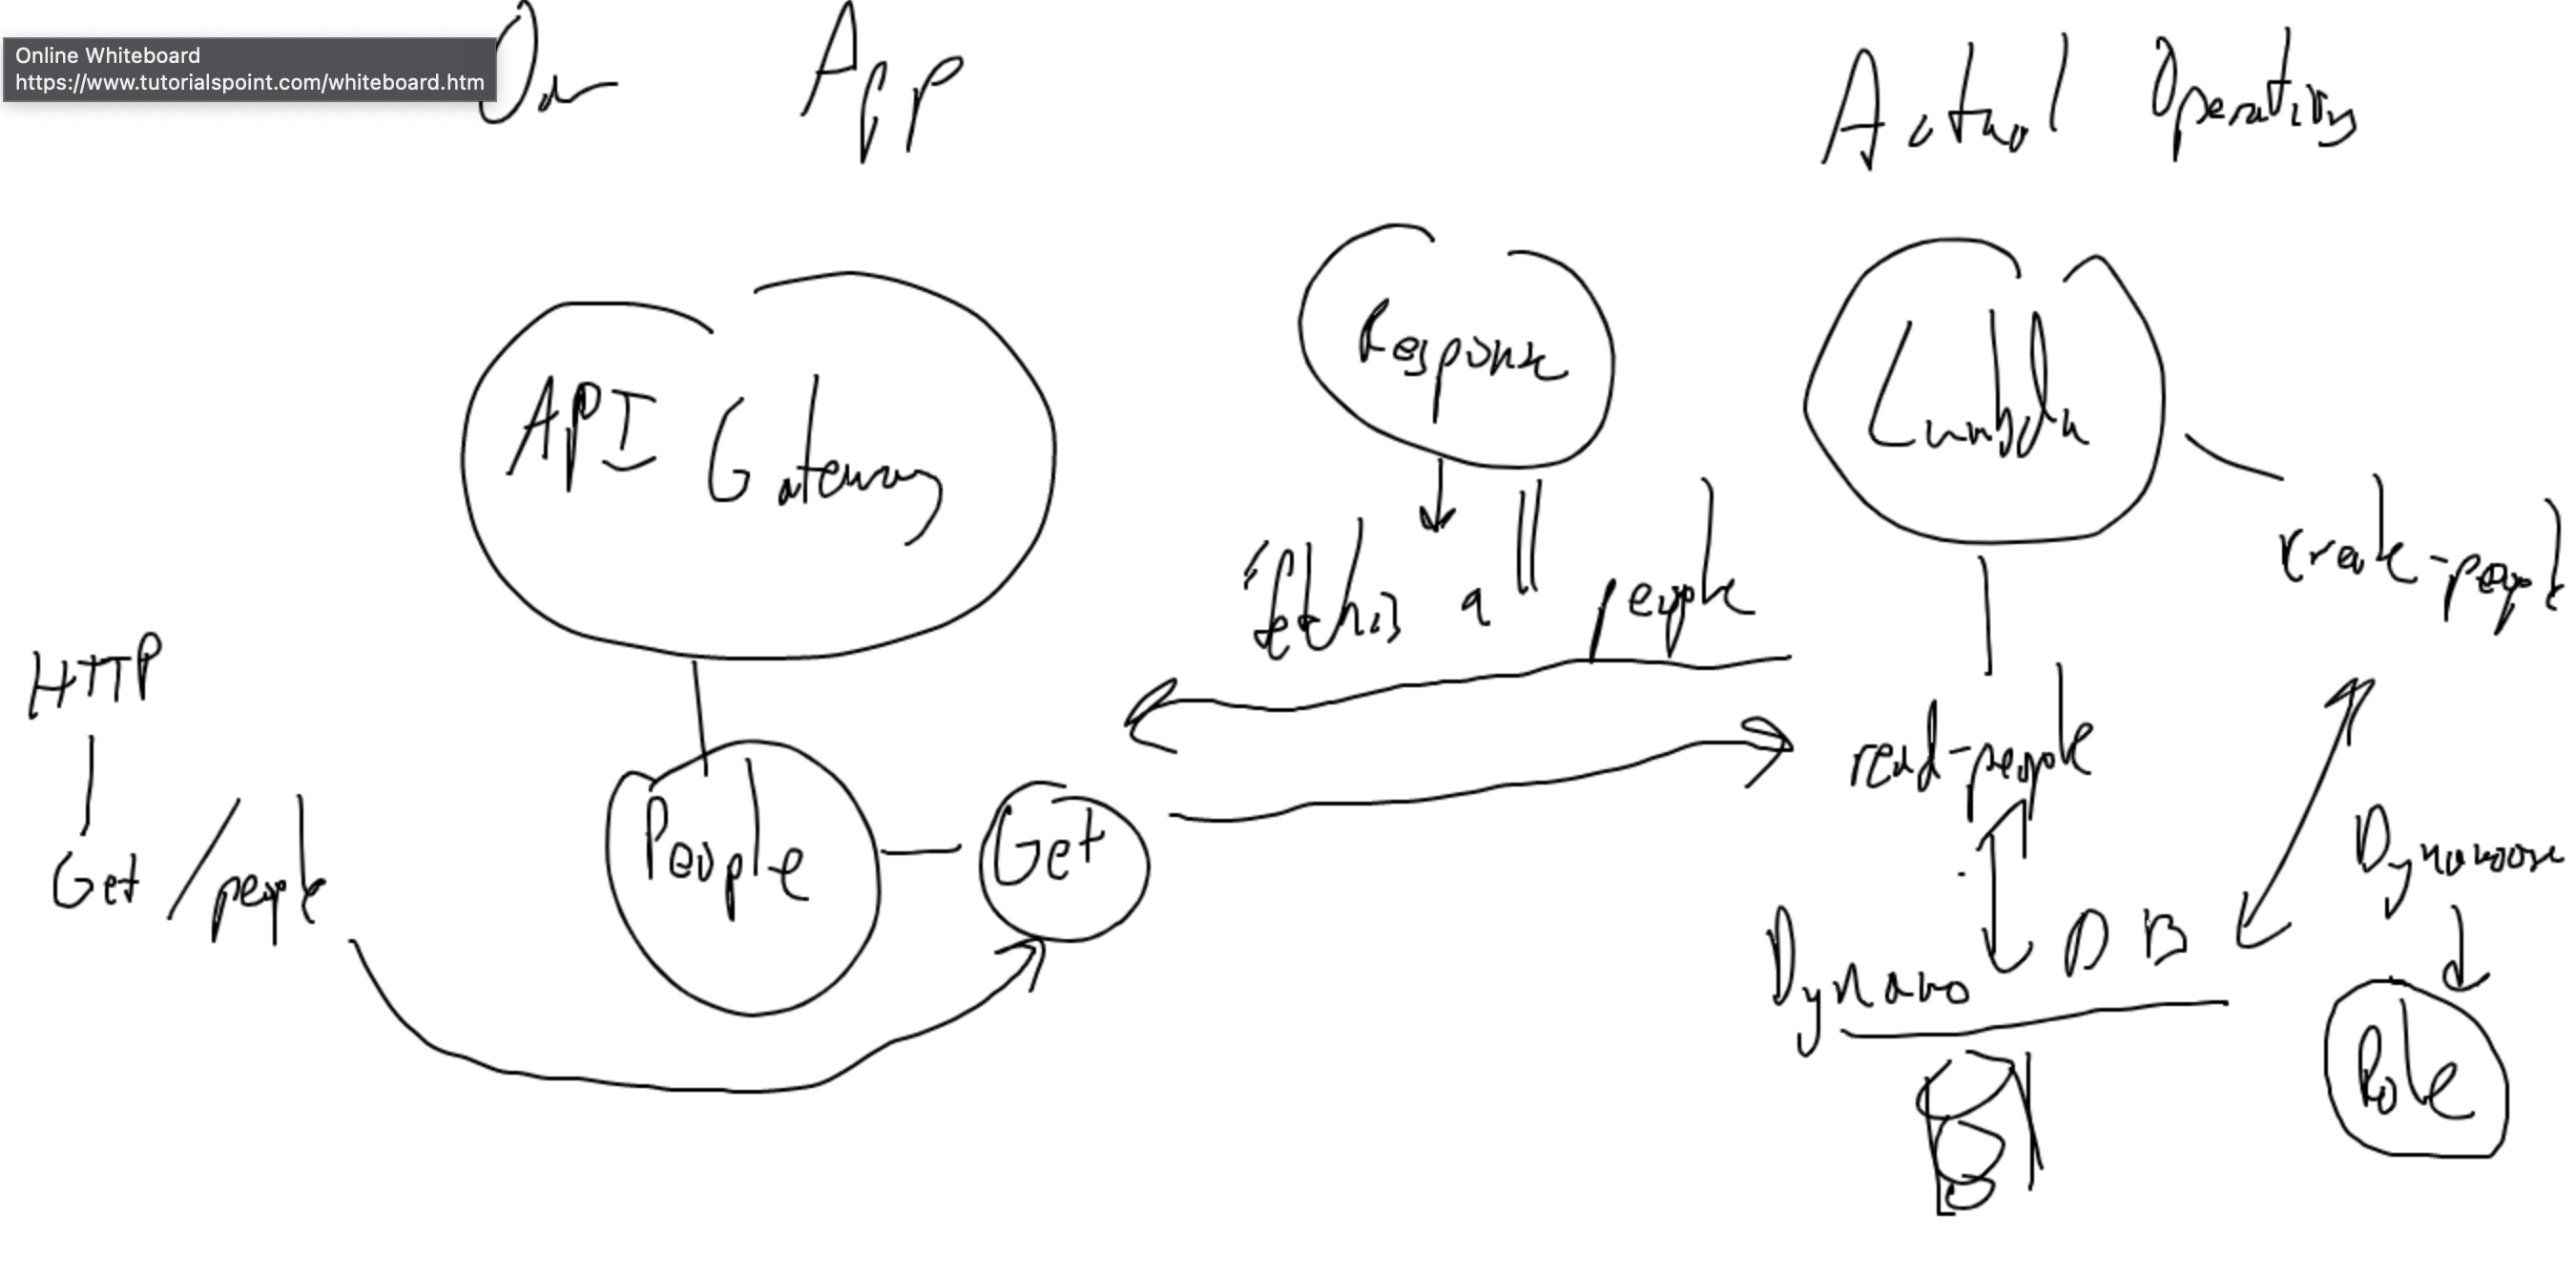 Online Whiteboard
https://www.tutorialspoint.com/whiteboard.htm
Our App
Actual Operations
API Gateway
Response
Lambda
all people
create-people
HTTP
Get /people
People
Get
read-people
Dynamo DB
Dynamoose
Role